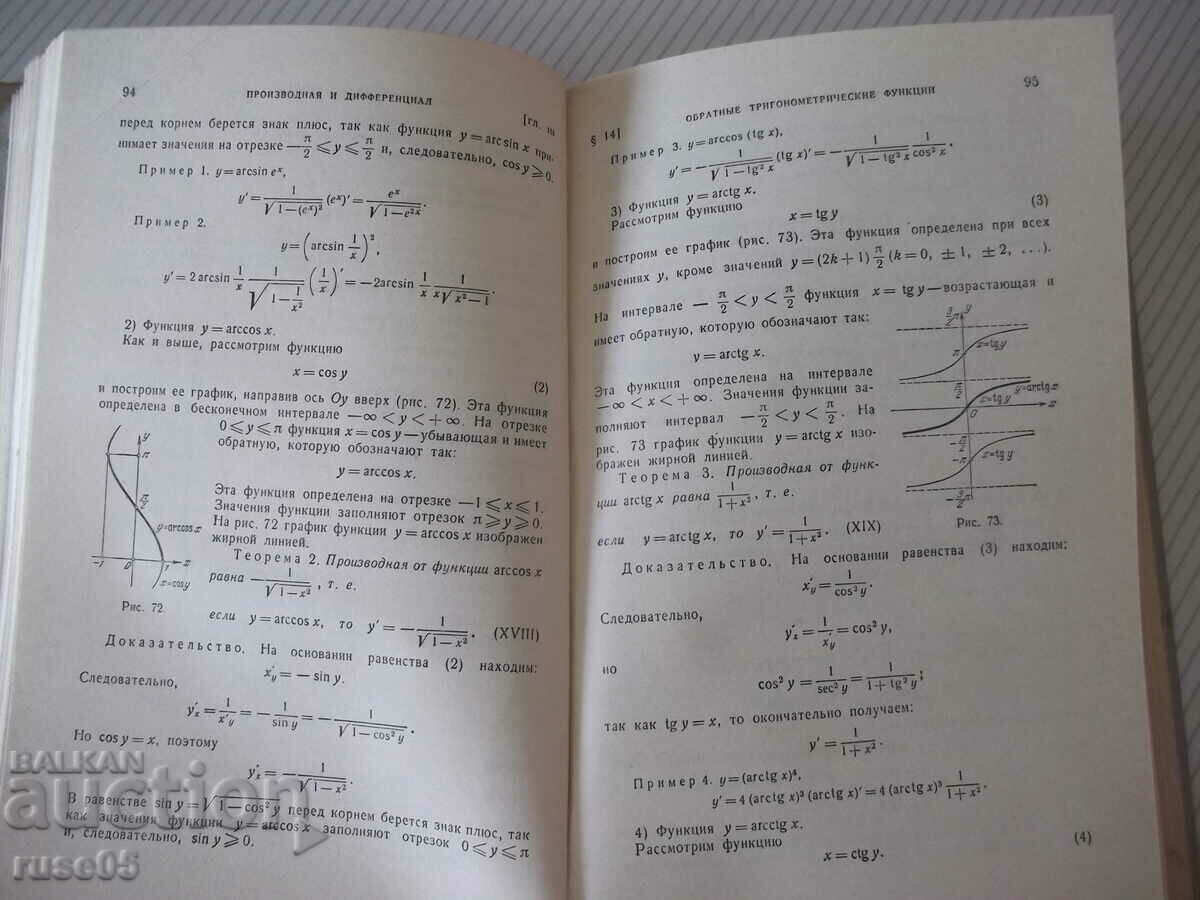 94
ПРОИЗВОДНАЯ И ДИФФЕРЕНЦИАЛ
[гл. III
перед корнем берется знак плюс, так как функция y = arcsin x при-
нимает значения на отрезке −π/2 ⩽ y ⩽ π/2 и, следовательно, cos y ⩾ 0.
Пример 1. y = arcsin eˣ,
y′ = 1/√(1−(eˣ)²) (eˣ)′ = eˣ/√(1−e²ˣ).
Пример 2.
y = (arcsin 1/x)²,
y′ = 2 arcsin 1/x · 1/√(1−1/x²) (1/x)′ = −2 arcsin 1/x · 1/(x√(x²−1)).
2) Функция y = arccos x.
Как и выше, рассмотрим функцию
x = cos y (2)
и построим ее график, направив ось Oy вверх (рис. 72). Эта функция
определена в бесконечном интервале −∞ < y < +∞. На отрезке
0 ⩽ y ⩽ π функция x = cos y — убывающая и имеет
обратную, которую обозначают так:
y = arccos x.
Эта функция определена на отрезке −1 ⩽ x ⩽ 1.
Значения функции заполняют отрезок π ⩾ y ⩾ 0.
На рис. 72 график функции y = arccos x изображен
жирной линией.
Теорема 2. Производная от функции arccos x
равна −1/√(1−x²), т. е.
y
π
π/2
y=arccos x
−1 0 1 x
x=cos y
Рис. 72.
если y = arccos x, то y′ = −1/√(1−x²). (XVIII)
Доказательство. На основании равенства (2) находим:
x′y = −sin y.
Следовательно,
y′x = 1/x′y = −1/sin y = −1/√(1−cos² y).
Но cos y = x, поэтому
y′x = −1/√(1−x²).
В равенстве sin y = √(1−cos² y) перед корнем берется знак плюс, так
как значения функции y = arccos x заполняют отрезок 0 ⩽ y ⩽ π
и, следовательно, sin y ⩾ 0.
§ 14]
ОБРАТНЫЕ ТРИГОНОМЕТРИЧЕСКИЕ ФУНКЦИИ
95
Пример 3. y = arccos (tg x),
y′ = −1/√(1−tg² x) (tg x)′ = −1/√(1−tg² x) · 1/cos² x.
3) Функция y = arctg x.
Рассмотрим функцию
x = tg y (3)
и построим ее график (рис. 73). Эта функция определена при всех
значениях y, кроме значений y = (2k+1) π/2 (k = 0, ±1, ±2, ...).
На интервале −π/2 < y < π/2 функция x = tg y — возрастающая и
имеет обратную, которую обозначают так:
y = arctg x.
Эта функция определена на интервале
−∞ < x < +∞. Значения функции за-
полняют интервал −π/2 < y < π/2. На
рис. 73 график функции y = arctg x изо-
бражен жирной линией.
Теорема 3. Производная от функ-
ции arctg x равна 1/(1+x²), т. е.
3/2 π y
x=tg y
π
π/2
y=arctg x
x=tg y
0 x
−π/2
−π
x=tg y
−3/2 π
Рис. 73.
если y = arctg x, то y′ = 1/(1+x²). (XIX)
Доказательство. На основании равенства (3) находим:
x′y = 1/cos² y.
Следовательно,
y′x = 1/x′y = cos² y,
но
cos² y = 1/sec² y = 1/(1+tg² y);
так как tg y = x, то окончательно получаем:
y′ = 1/(1+x²).
Пример 4. y = (arctg x)⁴,
y′ = 4 (arctg x)³ (arctg x)′ = 4 (arctg x)³ 1/(1+x²).
4) Функция y = arcctg x.
Рассмотрим функцию
x = ctg y. (4)
BALKAN
auction
ruse05